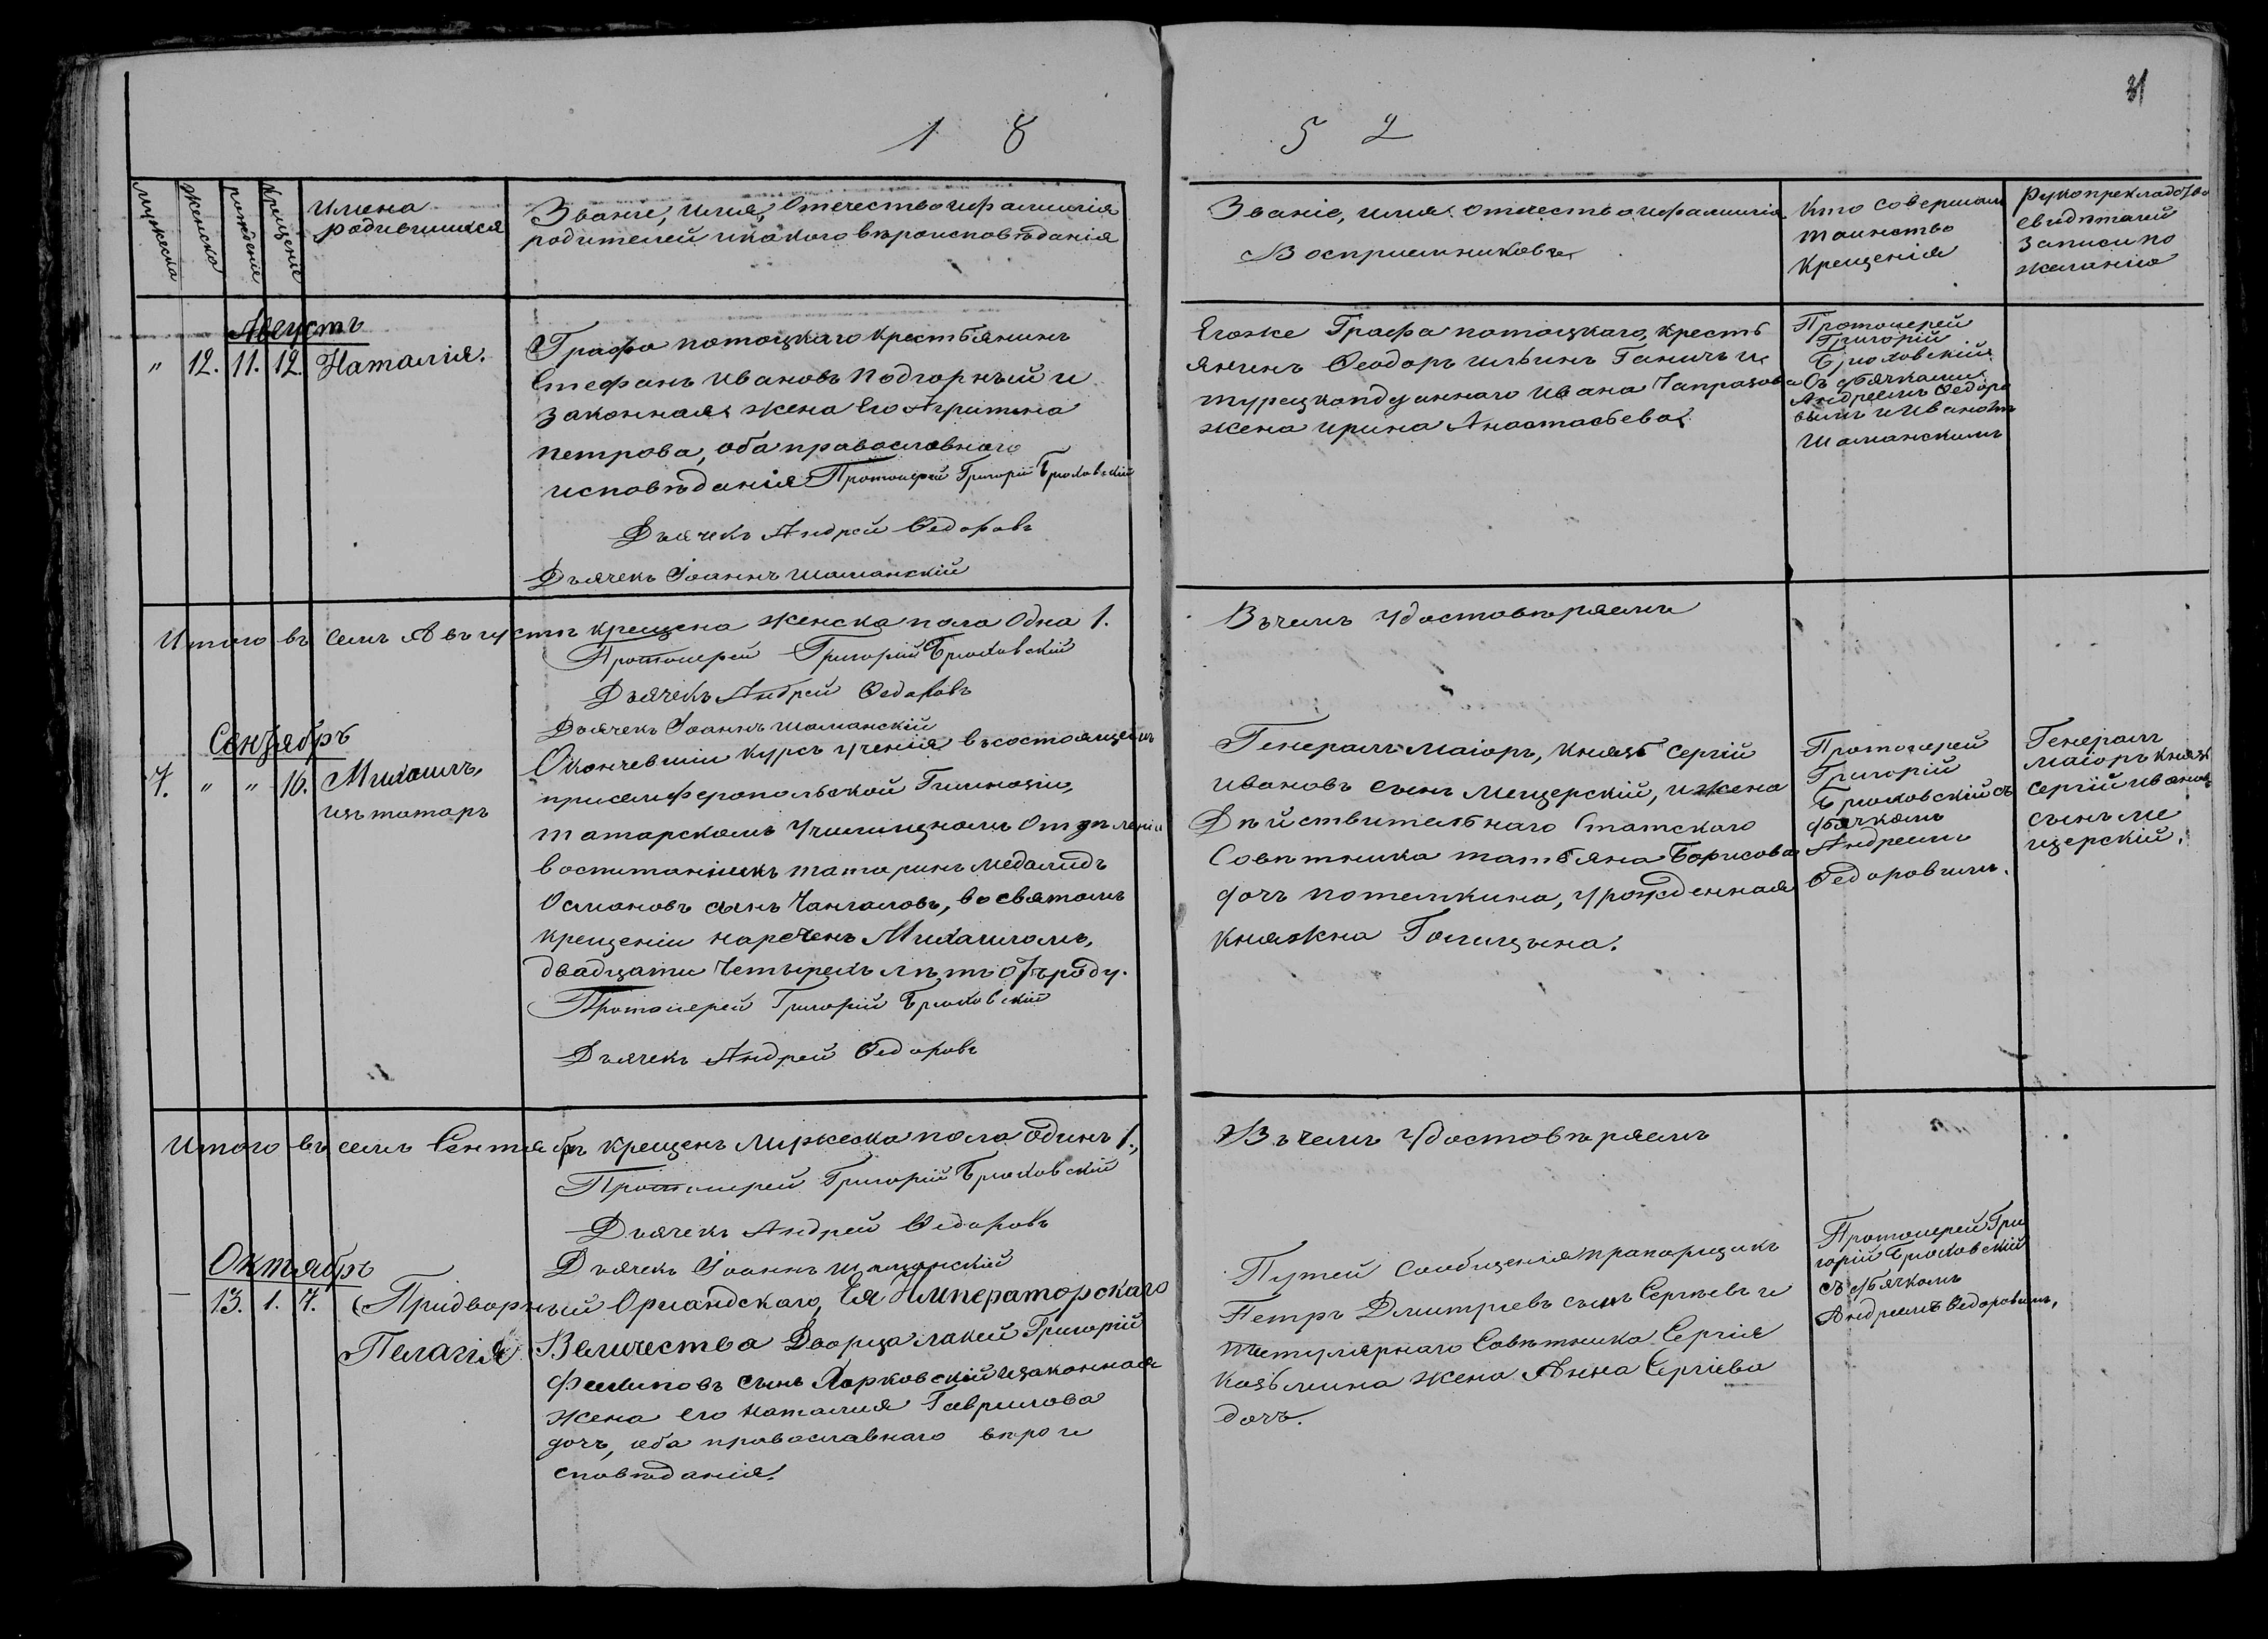 31
1 8 5 2
Мужеска
Женска
рождения
Крещенiе
Имена
родившихся
Званiе, имя, Отечество и фамилiя
родителей и какого вѣроисповѣданiя
Званiе, имя отечество и фамилiя
Восприемниковъ
Кто совершалъ
таинство
Крещенiя
свидѣтелей
записи по
желанiю
Августъ
" 12. 11. 12. Наталiя.
Графа потоцкаго крестьянинъ
Стефанъ Ивановъ Подгорный и
законная жена Его Агрипина
петрова, оба православнаго
исповѣданiя Протоiерей Григорiй Брюховскiй
Дьячекъ Андрей Ѳедоровъ
Дьячекъ Iоаннъ Шаманскiй
Егоже Графа потоцкаго, кресть
янинъ Ѳеодоръ Ильинъ Ганичъ и
турецкоподданнаго Ивана Чапразова
жена Ирина Анастасьева.
Протоiерей
Григорiй
Брюховскiй
Съ дьячками
Андреемъ Ѳедоро
вымъ и Иваномъ
Шаманскимъ
Итого въ семъ Августѣ крещена женска пола Одна 1.
Протоiерей Григорiй Брюховскiй
Дьячекъ Андрей Ѳедоровъ
Дьячекъ Iоаннъ Шаманскiй
Въ чемъ Удостовѣряемъ
Сентябръ
7. " " 16. Михаилъ,
изъ татаръ
Окончевшiй курсъ ученiя въ состоящемъ
при симферопольской Гимназiи,
татарскомъ Училищномъ Отдѣленiи
воспитанникъ татаринъ Медалидъ
Османовъ сынъ Чангаловъ, во святомъ
крещенiи нареченъ Михаиломъ,
двадцати Четырехъ лѣтъ отъ роду.
Протоiерей Григорiй Брюховскiй
Дьячекъ Андрей Ѳедоровъ
Генералъ Маiоръ, Князь Сергiй
Ивановъ сынъ Мещерскiй, и жена
Дѣйствительнаго Статскаго
Совѣтника татьяна Борисова
дочь потемкина, урожденная
княжна Голицына.
Протоiерей
Григорiй
Брюховскiй съ
дьячкомъ
Андреемъ
Ѳедоровымъ.
Генералъ
маiоръ князь
Сергiй Ивановъ
сынъ Ме
щерскiй.
Итого въ семъ Сентябрѣ крещенъ Мужеска пола одинъ 1.,
Протоiерей Григорiй Брюховскiй
Дьячекъ Андрей Ѳедоровъ
Дьячекъ Iоаннъ Шаманскiй
Въ чемъ Удостовѣряемъ
Октябръ
13. 1. 7.
Пелагiя
Придворный Орiандскаго, Ея Императорскаго
Величества Дворца лакей Григорiй
Филиповъ сынъ Харковскiй и законная
жена его Наталия Гаврилова
дочь, оба православнаго вѣро и
споведанiя.
Путей сообщенiя прапорщикъ
Петръ Дмитрiевъ сынъ Сергѣевъ и
титулярнаго Совѣтника Сергiя
Козьмина жена Анна Сергiева
дочь.
Протоiерей Гри
горiй Брюховскiй
съ дьячкомъ
Андреемъ Ѳедоровымъ,